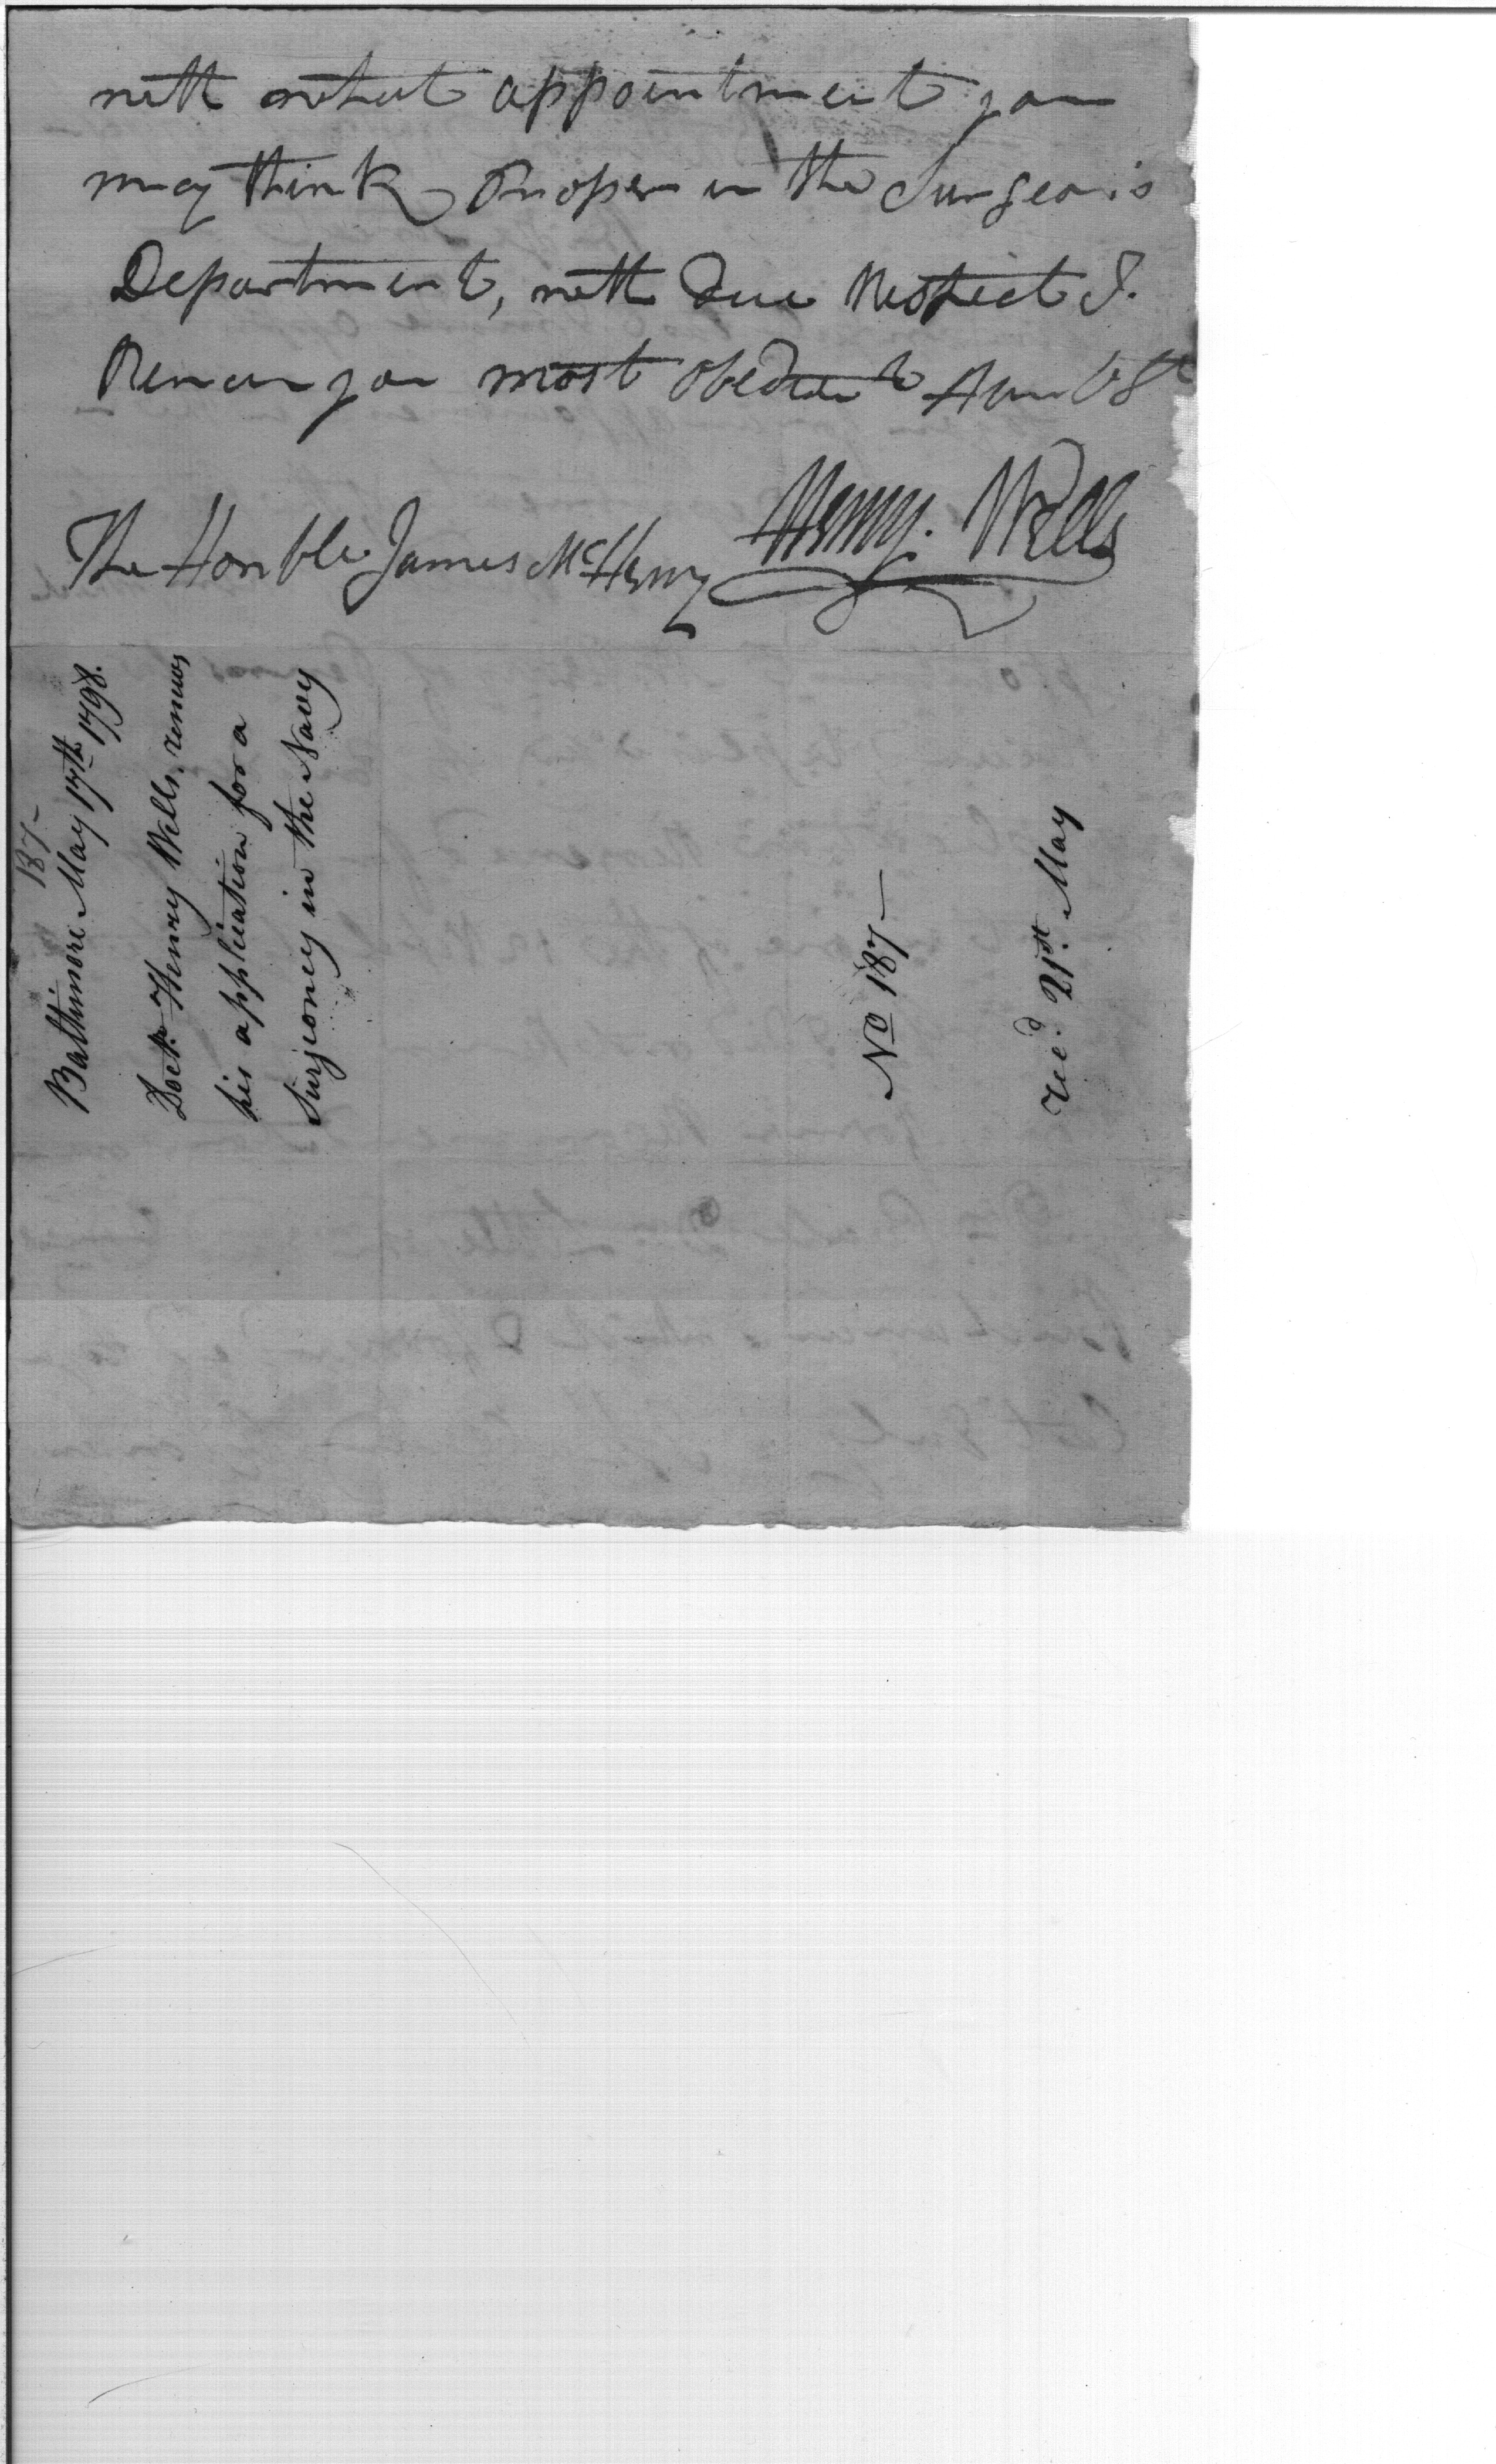 with what appointment you
may think Proper in the Surgeons
Department, with due Respect I.
Remain your most obedient Humb St
Henry. Wells
The Honble James McHenry
187-
Baltimore May 17th 1798.
Doctr. Henry Wells, renews
his application for a
Surjeoncy in the Navy
No 187-
recd. 21st. May